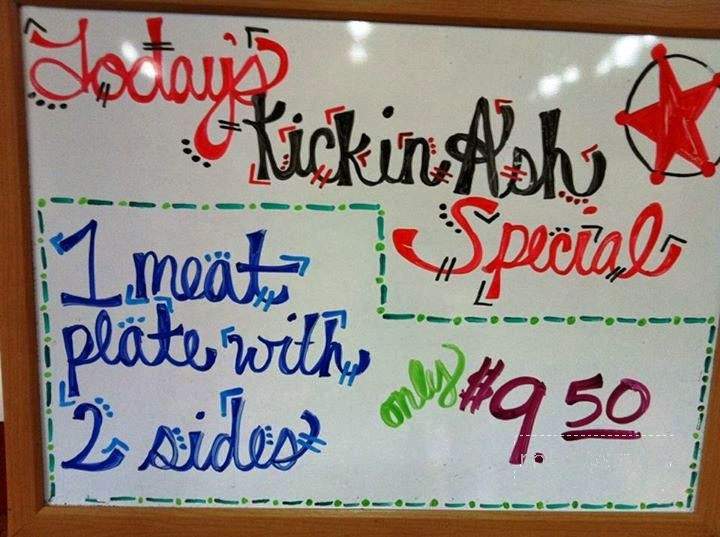 Today's
Kickin A'sh
Special
1 meat
plate with
2 sides
only $9.50